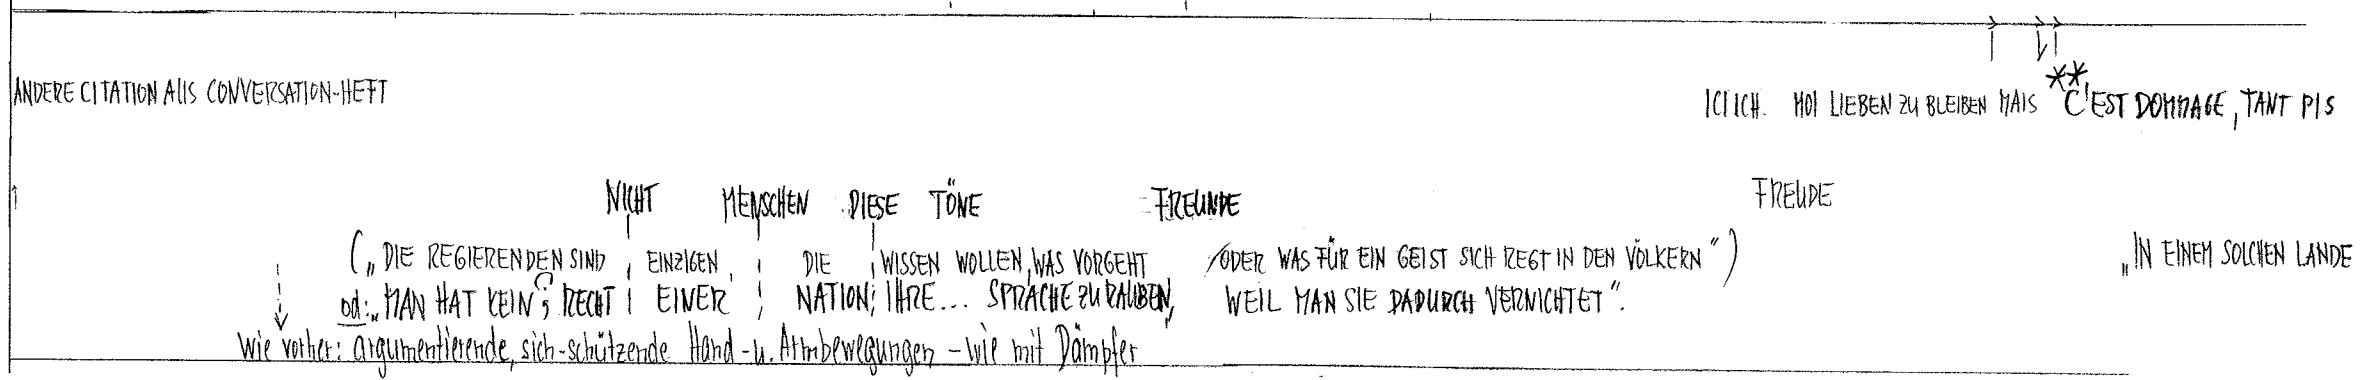 ANDERE CITATION AUS CONVERSATION-HEFT
ICI ICH. MOI LIEBEN ZU BLEIBEN MAIS **C'EST DOMMAGE, TANT PIS
NICHT MENSCHEN DIESE TÖNE FREUNDE FREUDE
(„DIE REGIERENDEN SIND EINZIGEN, DIE WISSEN WOLLEN, WAS VORGEHT /ODER WAS FÜR EIN GEIST SICH REGT IN DEN VÖLKERN") „IN EINEM SOLCHEN LANDE
od: „MAN HAT KEIN RECHT EINER NATION, IHRE... SPRACHE ZU RAUBEN, WEIL MAN SIE DADURCH VERNICHTET".
Wie vorher: argumentierende, sich-schützende Hand-u. Armbewegungen - wie mit Dämpfer